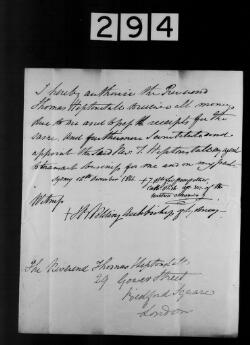 294
I hereby authorise the Reverend
Thomas Heptonstall to receive all money
due to me and to give receipts for the
same. And furthermore I constitute and
appoint the said Rev. T. Heptonstall my agent
to transact business for me and on my part
Sydney 18th December 1846.
Witness
+ J B Polding Archbishop of Sydney
The Reverend Thomas Heptonstall
29 Gower Street
Bedford Square
London